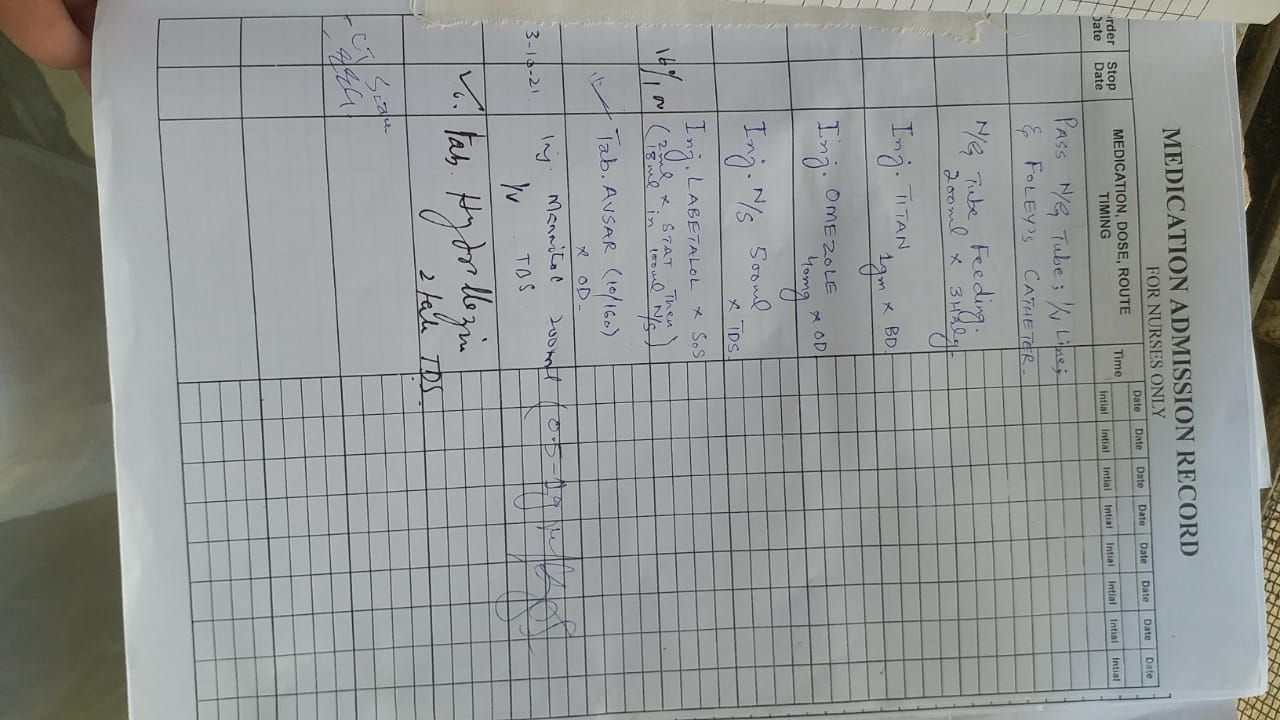 MEDICATION ADMISSION RECORD
FOR NURSES ONLY
Stop Date
MEDICATION, DOSE, ROUTE TIMING
Time
Date Date Date Date Date Date Date Date
Intial Intial Intial Intial Intial Intial Intial Intial
PASS N/G Tube; I/V Line;
& FOLEY'S CATHETER.
N/G Tube Feeding.
200ml x 3Hrly.
Inj. TITAN
1gm x BD.
Inj. OMEZOLE
40mg x OD
Inj. N/S 500ml
x TDS.
Inj. LABETALOL x SOS
(2ml x STAT Then
18ml in 100ml N/S)
Tab. AVSAR (10/160)
x OD.
3-10-21
Inj. Mannitol 200ml (0.5-1g
I/V TDS.
Tab.
2 tab TDS.